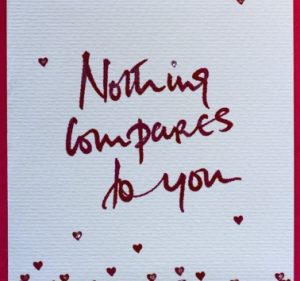 Nothing
Compares
to you